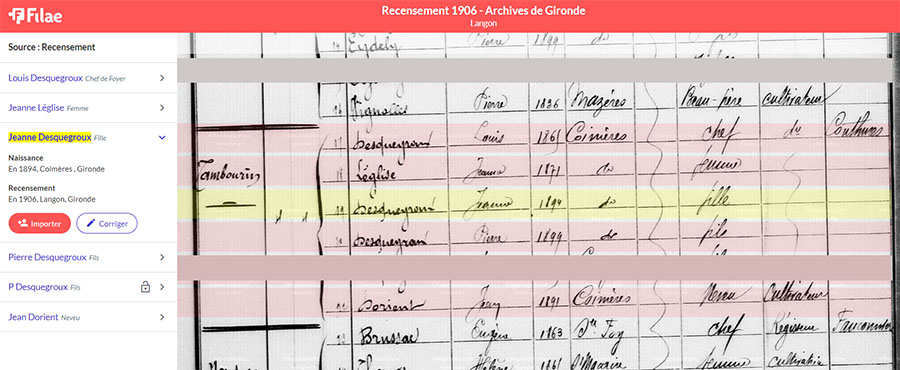 Filae
Recensement 1906 - Archives de Gironde
Langon
Source : Recensement
Louis Desquegroux Chef de Foyer
Jeanne Léglise Femme
Jeanne Desquegroux Fille
Naissance
En 1894, Coimères , Gironde
Recensement
En 1906, Langon, Gironde
Importer Corriger
Pierre Desquegroux Fils
P Desquegroux Fils
Jean Dorient Neveu
Eydely Pierre 1899 do
Vignolles Pierre 1836 Mazères Beau-père cultivateur
Tambourin
17 Desqueyroux Louis 1861 Coimères chef do
18 Léglise Jeanne 1871 do femme
19 Desqueyroux Jeanne 1894 do fille
Desqueyroux Pierre 1899 do fils
Dorient Jean 1891 Coimères Neveu Cultivateur
Brussac Eugène 1863 Ste Foy chef Régisseur
Hélène 1861 St Macaire femme